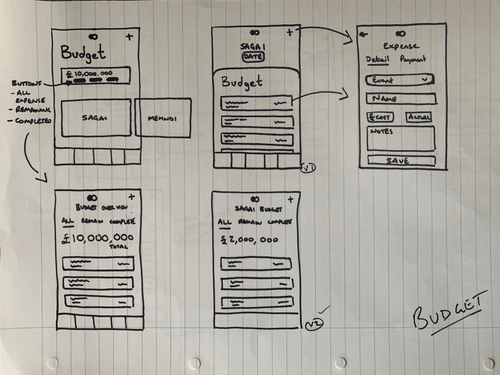 +
Budget
£10,000,000
BUTTONS
- ALL
EXPENSE
- REMAINING
- COMPLETED
SAGAI
MEHNDI
+
SAGAI
DATE
Budget
V1
←
Expense
Detail Payment
Event
NAME
£COST ACTUAL
NOTES
SAVE
+
BUDGET OVERVIEW
ALL REMAIN COMPLETE
£10,000,000
TOTAL
+
SAGAI BUDGET
ALL REMAIN COMPLETE
£2,000,000
V2 ✓
BUDGET